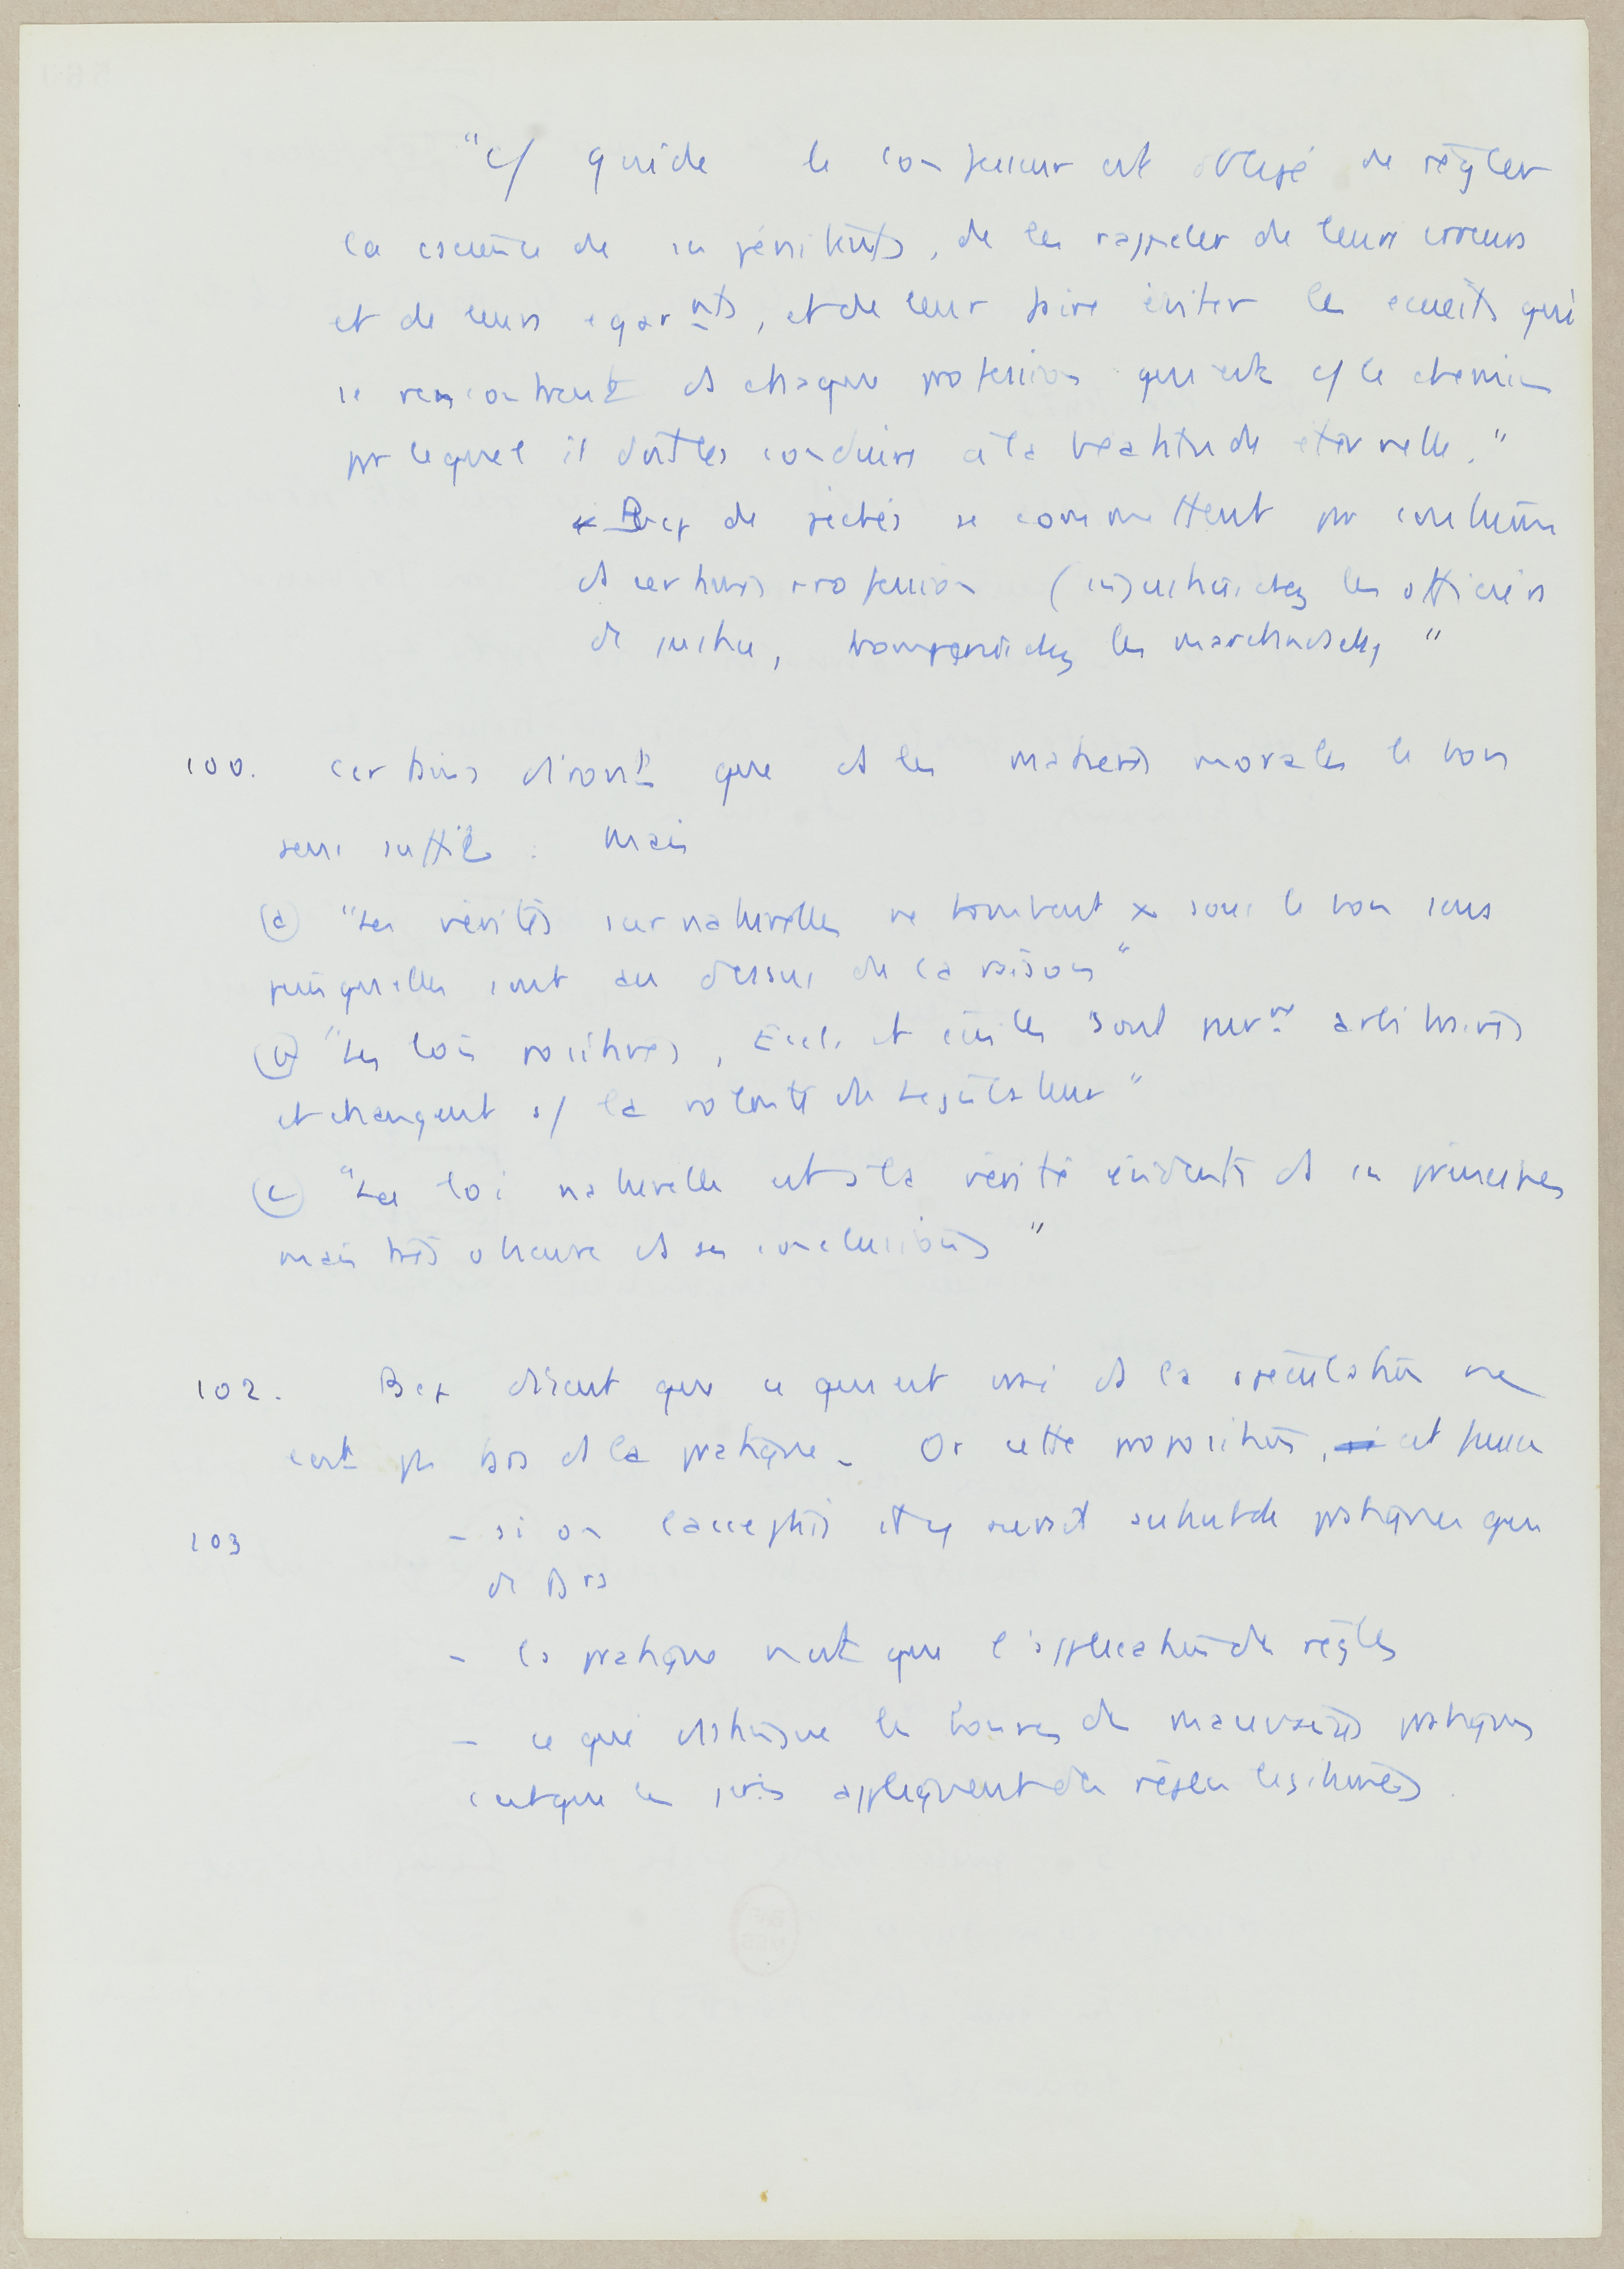 "c/ guide le confesseur est obligé de régler
la cscience de ses pénitents, de les rappeler de leurs erreurs
et de leurs égarnts, et de leur faire éviter les écueils qui
se rencontrent ds chaque profession qui est c/ le chemin
par lequel il doit les conduire à la béatitude éternelle."
Bcp de péchés se commettent par coutume
ds certaines profession (injustice chez les officiers
de justice, tromperie chez les marchands etc, "
100. Certains diront que ds les matières morales le bon
sens suffit : Mais
(a) "Les vérités surnaturelles ne tombent x sous le bon sens
puisqu'elles sont au dessus de la raison"
(b) "Les lois positives, Eccl. et civiles sont purnt arbitraires
et changent s/ la volonté du Législateur"
(c) "La loi naturelle est à la vérité évidente ds ses principes
mais très obscure ds ses conclusions"
102. Bcp disent que ce qui est vrai ds la spéculation ne
l'est pas ds la pratique. Or cette proposition, est fausse
103 - si on l'acceptait il y aurait autant de pratiques que
de
- la pratique n'est que l'application de règles
- ce qui distingue les bonnes des mauvaises pratiques
c'est que les appliquent des règles légitimes.